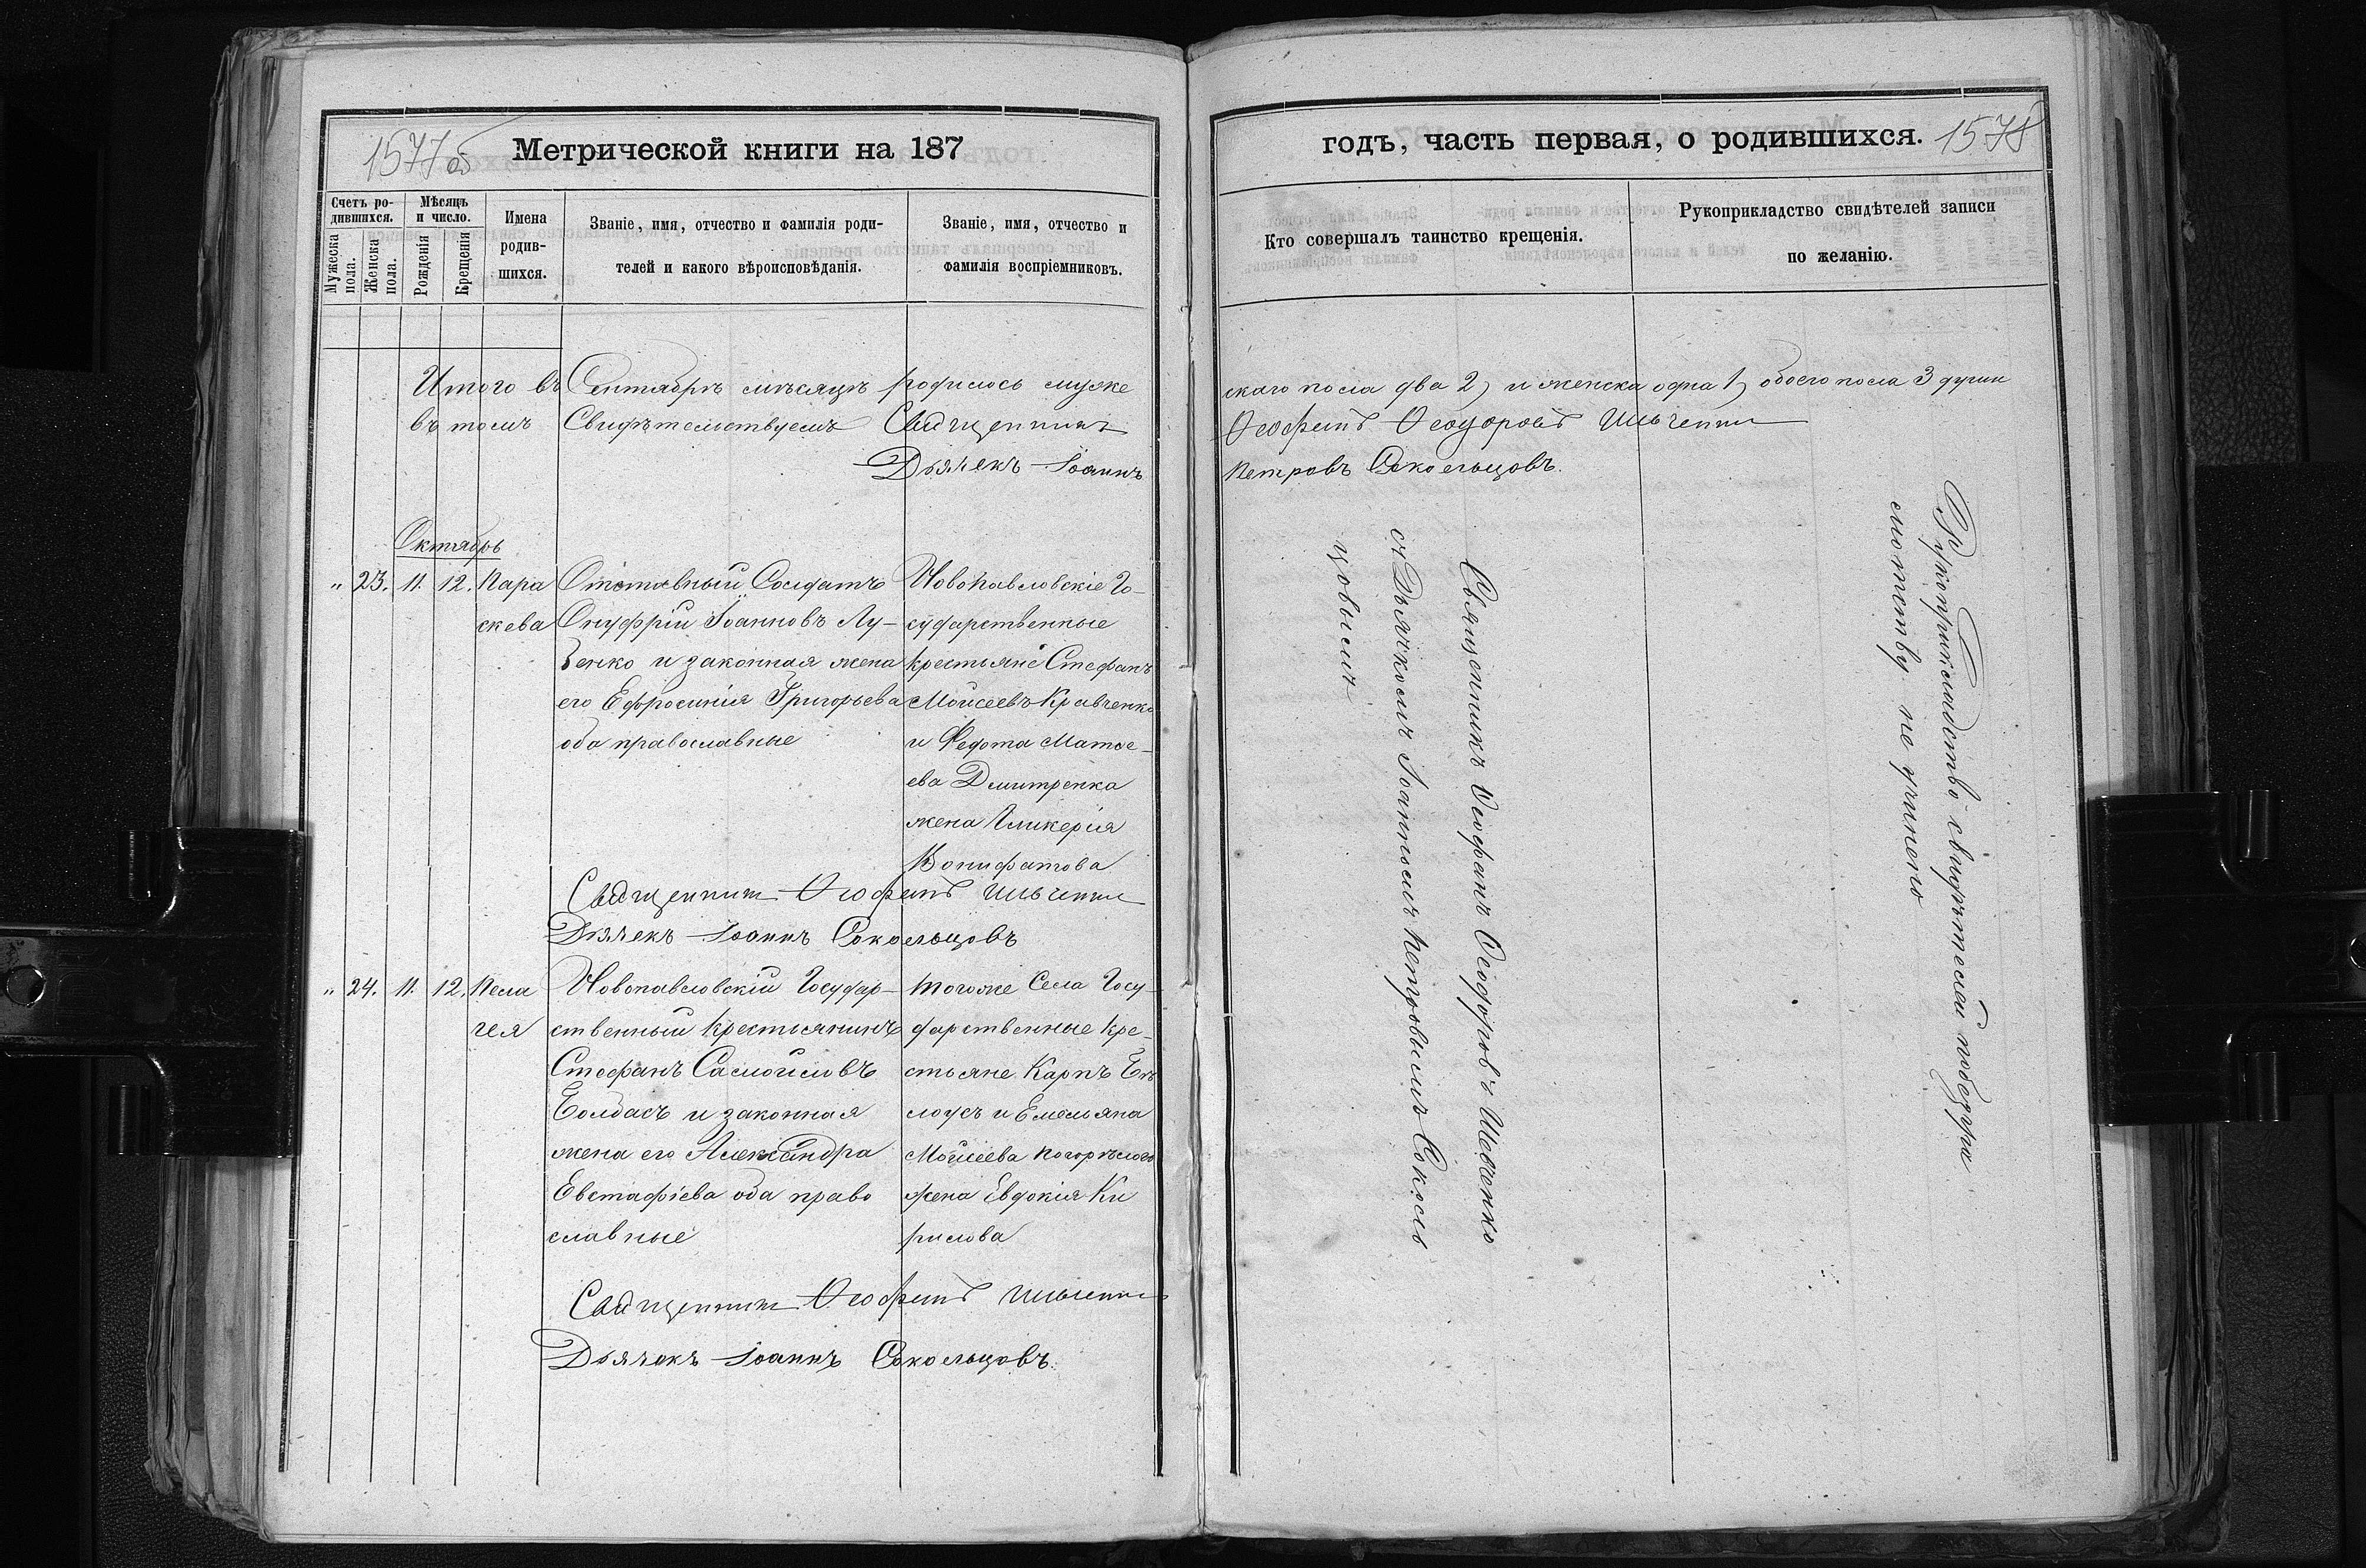 1577 об
Метрической книги на 187
Счетъ ро-
дившихся.
Мужеска
пола.
Женска
пола.
Мѣсяцъ
и число.
Рожденія
Крещенія
Имена
родив-
шихся.
Званіе, имя, отчество и фамилія роди-
телей и какого вѣроисповѣданія.
Званіе, имя, отчество и
фамилія воспріемниковъ.
Итого въ Сентябрѣ мѣсяцѣ родилось муже
въ томъ Свидѣтельствуемъ Священникъ
Дьячекъ Іоаннъ
Октябрь
" 23. 11. 12. Пара
скева
Отставный Солдатъ
Онуфрій Іоанновъ Лу-
ценко и законная жена
его Ефросинія Григорьева
оба православные
Новопавловскіе Го-
сударственные
крестьяне Стефанъ
Моисеевъ Кравченко
и Федота Матѳе-
ева Дмитренка
жена Гликерія
Вонифатова
Священникъ Ѳеофанъ Ильченко
Дьячекъ Іоаннъ Сокольцовъ
" 24. 11. 12. Пела
гея
Новопавловскій Государ-
ственный крестьянинъ
Стефанъ Самойловъ
Болбасъ и законная
жена его Александра
Евстафіева оба право
славные
тогоже Села Госу-
дарственные кре-
стьяне Карпъ Бѣ
лоусъ и Емельяна
Моисеева Погорѣлого
жена Евдокія Ки
рилова
Священникъ Ѳеофанъ Ильченко
Дьячекъ Іоаннъ Сокольцовъ.
годъ, часть первая, о родившихся.
1578
Кто совершалъ таинство крещенія.
Рукоприкладство свидѣтелей записи
по желанію.
скаго пола два 2, и женска одна 1, обоего пола 3 души
Ѳеофанъ Ѳеодоровъ Ильченко
Петровъ Сокольцовъ.
Священникъ Ѳеофанъ Ѳеодоровъ Ильченко
съ Дьячкомъ Іоанномъ Петровымъ Соколь
цовымъ
Рукоприкладство свидѣтелей по безгра
мотству не учинено